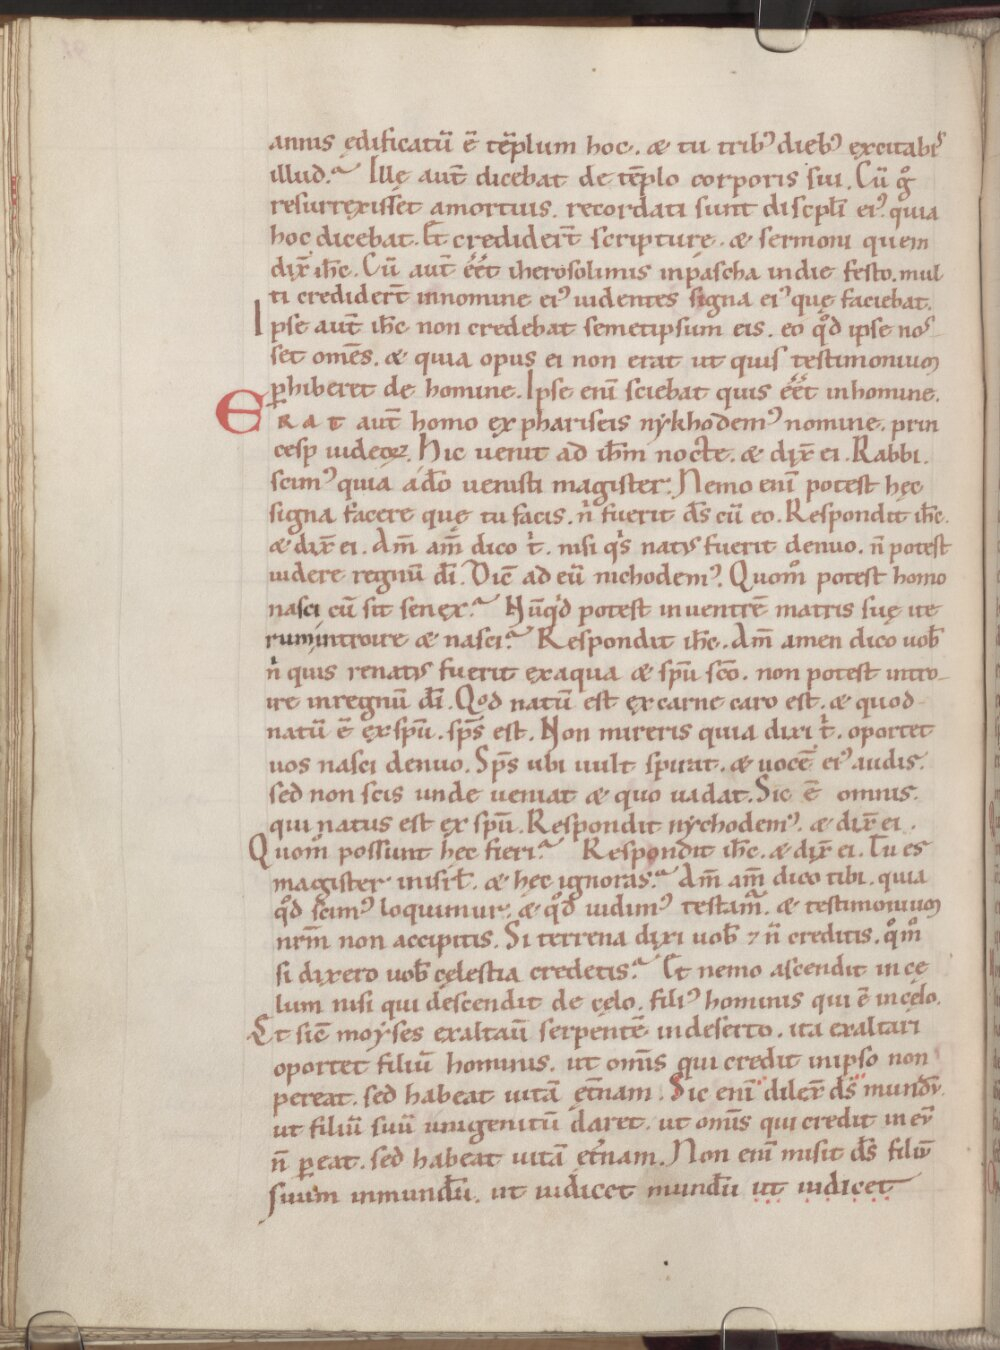 annis ędificatū ē tēplum hoc. & tu tribꝰ diebꝰ excitabiſ
illud? Ille aut̄ dicebat de tēplo corporis sui. Cū g̊
resurrexisset amortuis. recordati sunt discpl̄i eiꝰ quia
hoc dicebat. Et credider̄t scripture. & sermoni quem
dix̄ ih̄c. Cū aut̄ eēt iherosolimis inpascha indie festo. mul
ti credider̄t innomine eiꝰ uidentes signa eiꝰ quę faciebat.
Ipse aut̄ ih̄c non credebat semetipsum eis. eo qd̊ ipse nos-
set om̄s. & quia opus ei non erat ut quis testimonium
ꝑhiberet de homine. Ipse enī sciebat quis eēt inhomine.
ERAT aut̄ homo ex phariseis nykhodemꝰ nomine. prin
cesp iudeoꝝ. Hic uenit ad ih̄m nocte. & dix̄ ei. Rabbi.
scimꝰ quia ad̄o uenisti magister. Nemo enī potest hęc
signa facere quę tu facis. n̄ fuerit d̄s cū eo. Respondit ih̄c.
& dix̄ ei. Am̄ am̄ dico t̄. nisi qͥs natꝰ fuerit denuo. n̄ potest
uidere regnū dī. Dic̄ ad eū nichodemꝰ. Quom̊ potest homo
nasci cū sit senex? Nūqͥd potest inuentrē matris suę ite
rumintroire & nasci? Respondit ih̄c. Am̄ amen dico uob̄
n̄ quis renatꝰ fuerit exaqua & sp̄u sc̄o. non potest intro-
ire inregnū dī. Qod natū est ex carne caro est. & quod
natū ē ex sp̄u. sp̄s est. Non mireris quia dixi t̄. oportet
uos nasci denuo. Sp̄s ubi uult spirat. & uocē eiꝰ audis.
sed non scis unde ueniat & quo uadat. Sic ē omnis.
qui natus est ex sp̄u. Respondit nychodemꝰ. & dix̄ ei.
Quom̊ possunt hec fieri? Respondit ih̄c. & dix̄ ei. Tu es
magister inisrl̄. & hęc ignoras? Am̄ am̄ dico tibi. quia
qd̊ scimꝰ loquimur. & qd̊ uidimꝰ testam̄. & testimonium
nrm̄ non accipitis. Si terrena dixi uob̄ ⁊ n̄ creditis. qm̊
si dixero uob̄ cęlestia credetis? Et nemo ascendit in cę
lum nisi qui descendit de cęlo. filiꝰ hominis qui ē in cęlo.
Et sic̄ moyses exaltaū serpentē indeserto. ita exaltari
oportet filiū hominis. ut om̄is qui credit inipso non
pereat. sed habeat uitā et̄nam. Sic enī dilex̄ d̄s mundū.
ut filiū suū unigenitū daret. ut om̄is qui credit in eū
n̄ ꝑeat. sed habeat uitā et̄nam. Non enī misit d̄s filiū
suum inmundū. ut iudicet mundū ut iudicet